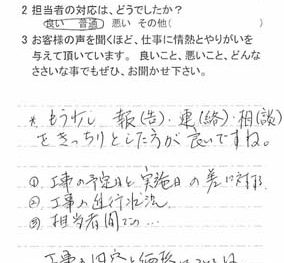 2 担当者の対応は、どうでしたか?
良い 普通 悪い その他( )
3 お客様の声を聞くほど、仕事に情熱とやりがいを
与えて頂いています。 良いこと、悪いこと、どんな
ささいな事でもぜひ、お聞かせ下さい。
* もう少し 報(告)・連(絡)・相(談)
をきっちりとした方が良いですね。
① 工事の予定日と実施日の差に対する
② 工事の進行状況
③ 担当者間での…
工事の内容と価格については